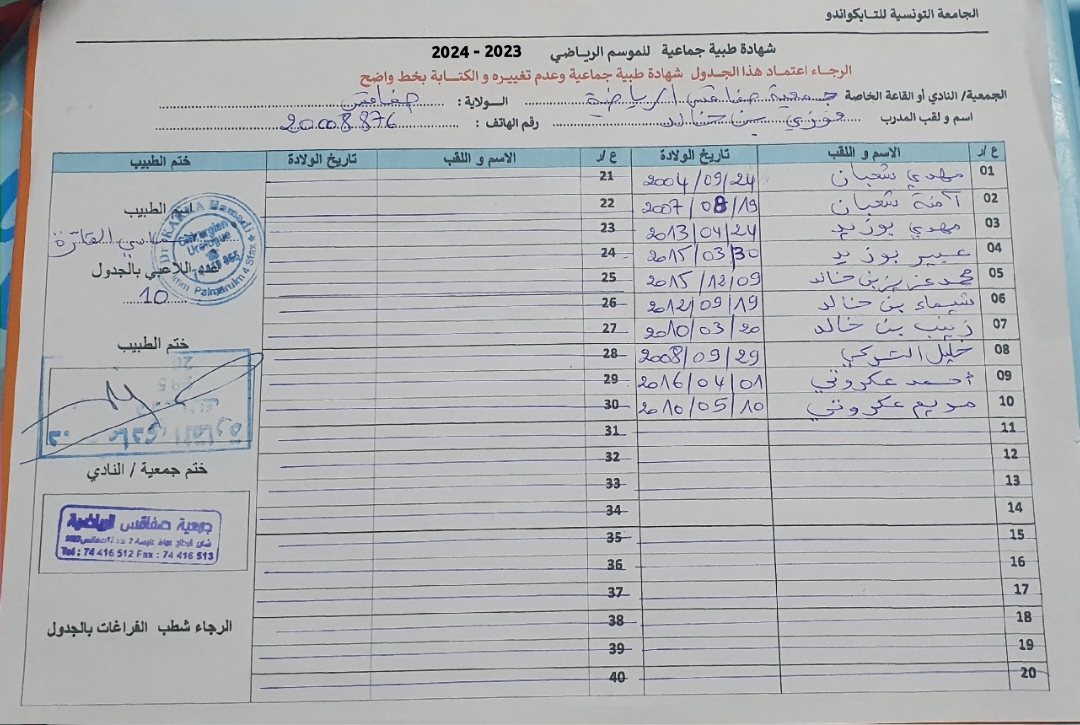 الجامعة التونسية للتايكواندو
شهادة طبية جماعية للموسم الرياضي 2023 - 2024
الرجاء اعتماد هذا الجدول شهادة طبية جماعية وعدم تغييره و الكتابة بخط واضح
الجمعية/ النادي أو القاعة الخاصة جمعية صفاقس الرياضية الولاية : صفاقس
اسم و لقب المدرب فوزي بن خالد رقم الهاتف : 20.008.876
ع /ر الاسم و اللقب تاريخ الولادة ع /ر الاسم و اللقب تاريخ الولادة ختم الطبيب
01 مهدي شعبان 2004/09/24 21
02 آمنة شعبان 2007/08/19 22
03 مهدي بوزيد 2013/04/24 23
04 عبير بوزيد 2015/03/30 24
05 محمد عزيز بن خالد 2015/12/09 25
06 شيماء بن خالد 2012/09/19 26
07 زينب بن خالد 2010/03/20 27
08 خليل التركي 2008/09/29 28
09 أحمد عكروتي 2016/04/01 29
10 مريم عكروتي 2010/05/10 30
11 31
12 32
13 33
14 34
15 35
16 36
17 37
18 38
19 39
20 40
اسم الطبيب
عدد اللاعبي بالجدول
10
Chirurgien
Urologue
ختم الطبيب
ختم جمعية / النادي
جمعية صفاقس الرياضية
Tel : 74 416 512 Fax : 74 416 513
الرجاء شطب الفراغات بالجدول